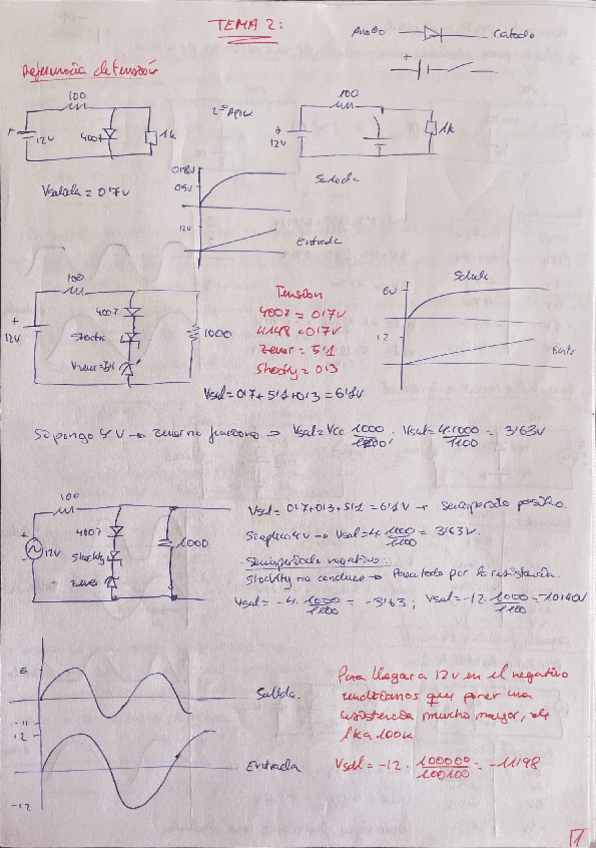 TEMA 2:
Anodo
Catodo
+
Referencia de tensión
100
+
12V
4007
1k
100
+
12V
1k
Vsalida = 0'7V
0'8V
0'5V
Salida
12V
Entrada
100
+
12V
4007
Shocky
Vzener=5'1
1000
Tension
4007 = 0'7V
4148 = 0'7V
zener = 5'1
Shocky = 0'3
Vsal = 0'7 + 5'1 + 0'3 = 6'1V
6V
Salida
12
Entr
Si pongo 4V → zener no funciona → Vsal = Vcc 1000/1100; Vsal = 4·1000/1100 = 3'63V
100
+
12V
4007
Shockty
zener
1000
Vsal = 0'7+0'3+5'1 = 6'1V → semiperiodo positivo.
Si aplico 4V → Vsal = 4·1000/1100 = 3'63V.
Semiperiodo negativo:
Shockty no conduce → Pasa todo por la resistencia.
Vsal = -4·1000/1100 = -3'63; Vsal = -12·1000/1100 = -10'90V
6
Salida.
-11
12
Entrada
-12
Para llegar a 12V en el negativo
tendríamos que poner una
resistencia mucho mayor, de
1k a 100k
Vsal = -12·100000/100100 = -11'98
1